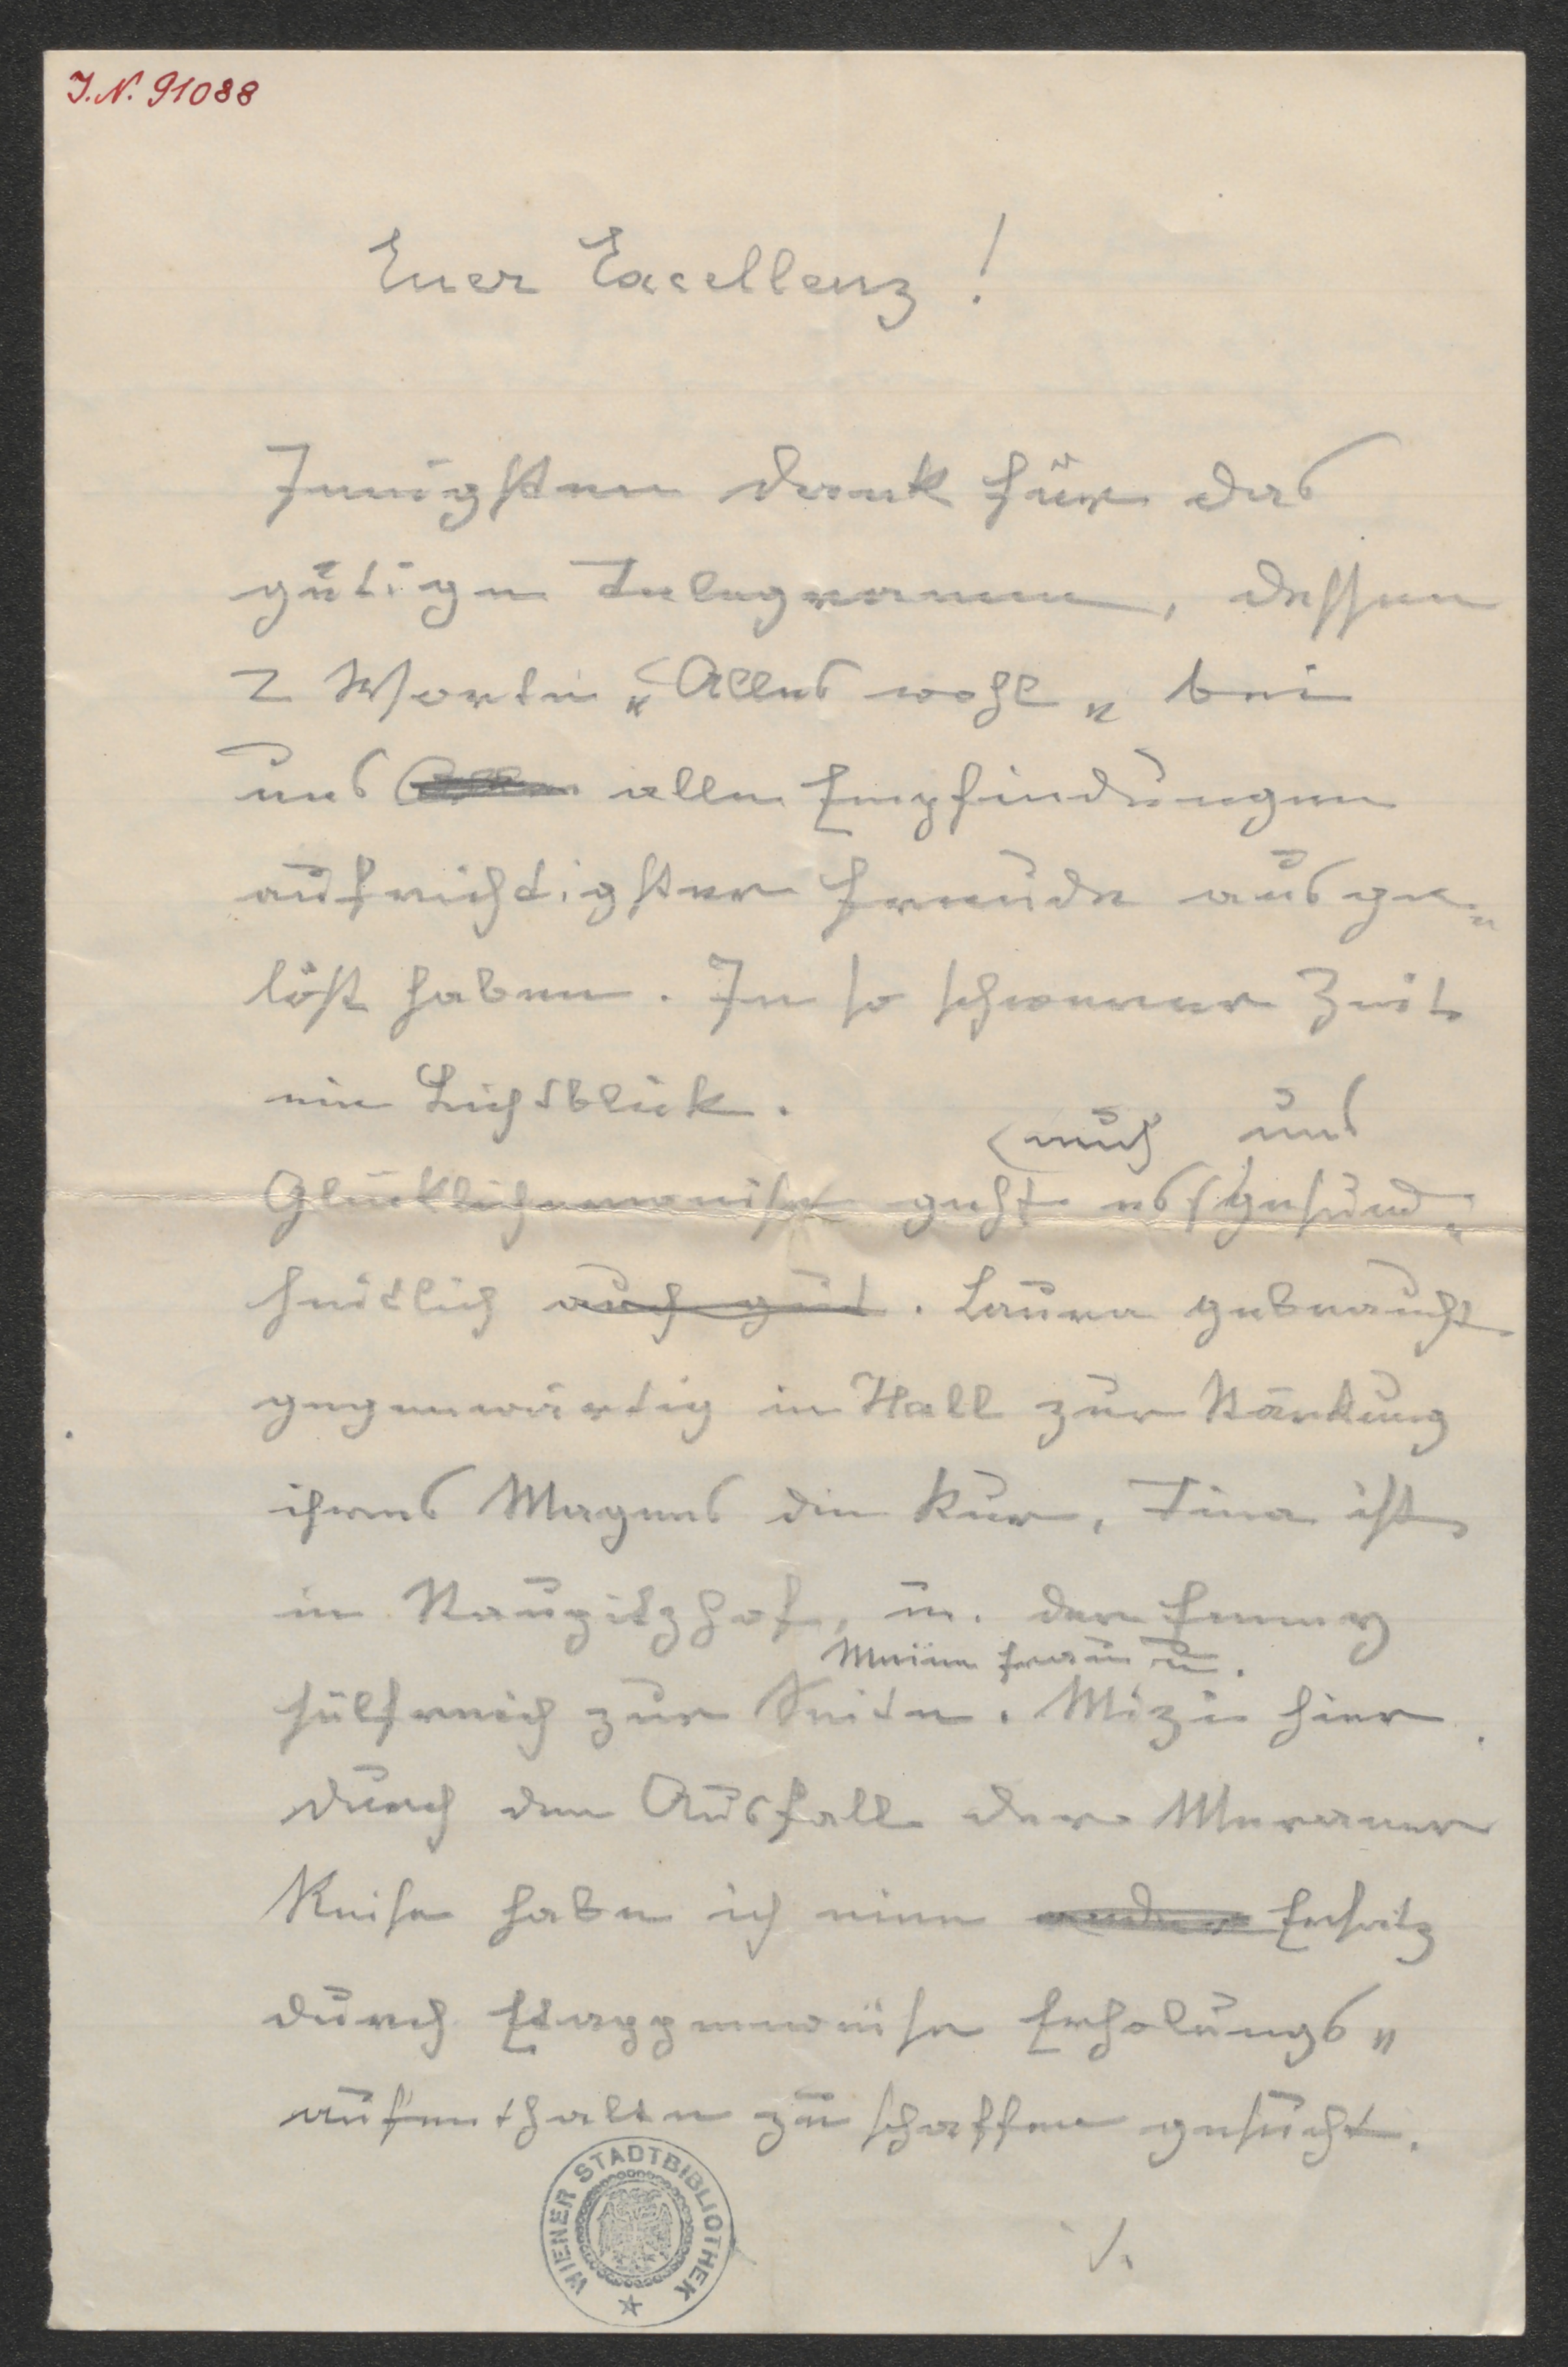 I.N. 91088
Euer Excellenz !
Innigsten Dank für das
gütige Telegramm, dessen
2 Worte „Alles wohl„ bei
uns alle Empfindungen
aufrichtigster Freude ausge„
löst haben. In so schwerer Zeit
ein Lichtblick.
auch uns
Glücklicherweise geht es gesund„
heitlich auch gut. Laura gebraucht
gegenwärtig in Hall zur Stärkung
ihres Magens die Kur, Tina ist
in Staupitzhof, u. der Emmy
Meine Frau u.
hülfreich zur Seite. Mizi hier.
durch den Ausfall der Meraner
Reise habe ich einen Ersatz
durch Etappenweise Erholungs„
aufenthalte zu schaffen gesucht.
WIENER STADTBIBLIOTHEK
./.